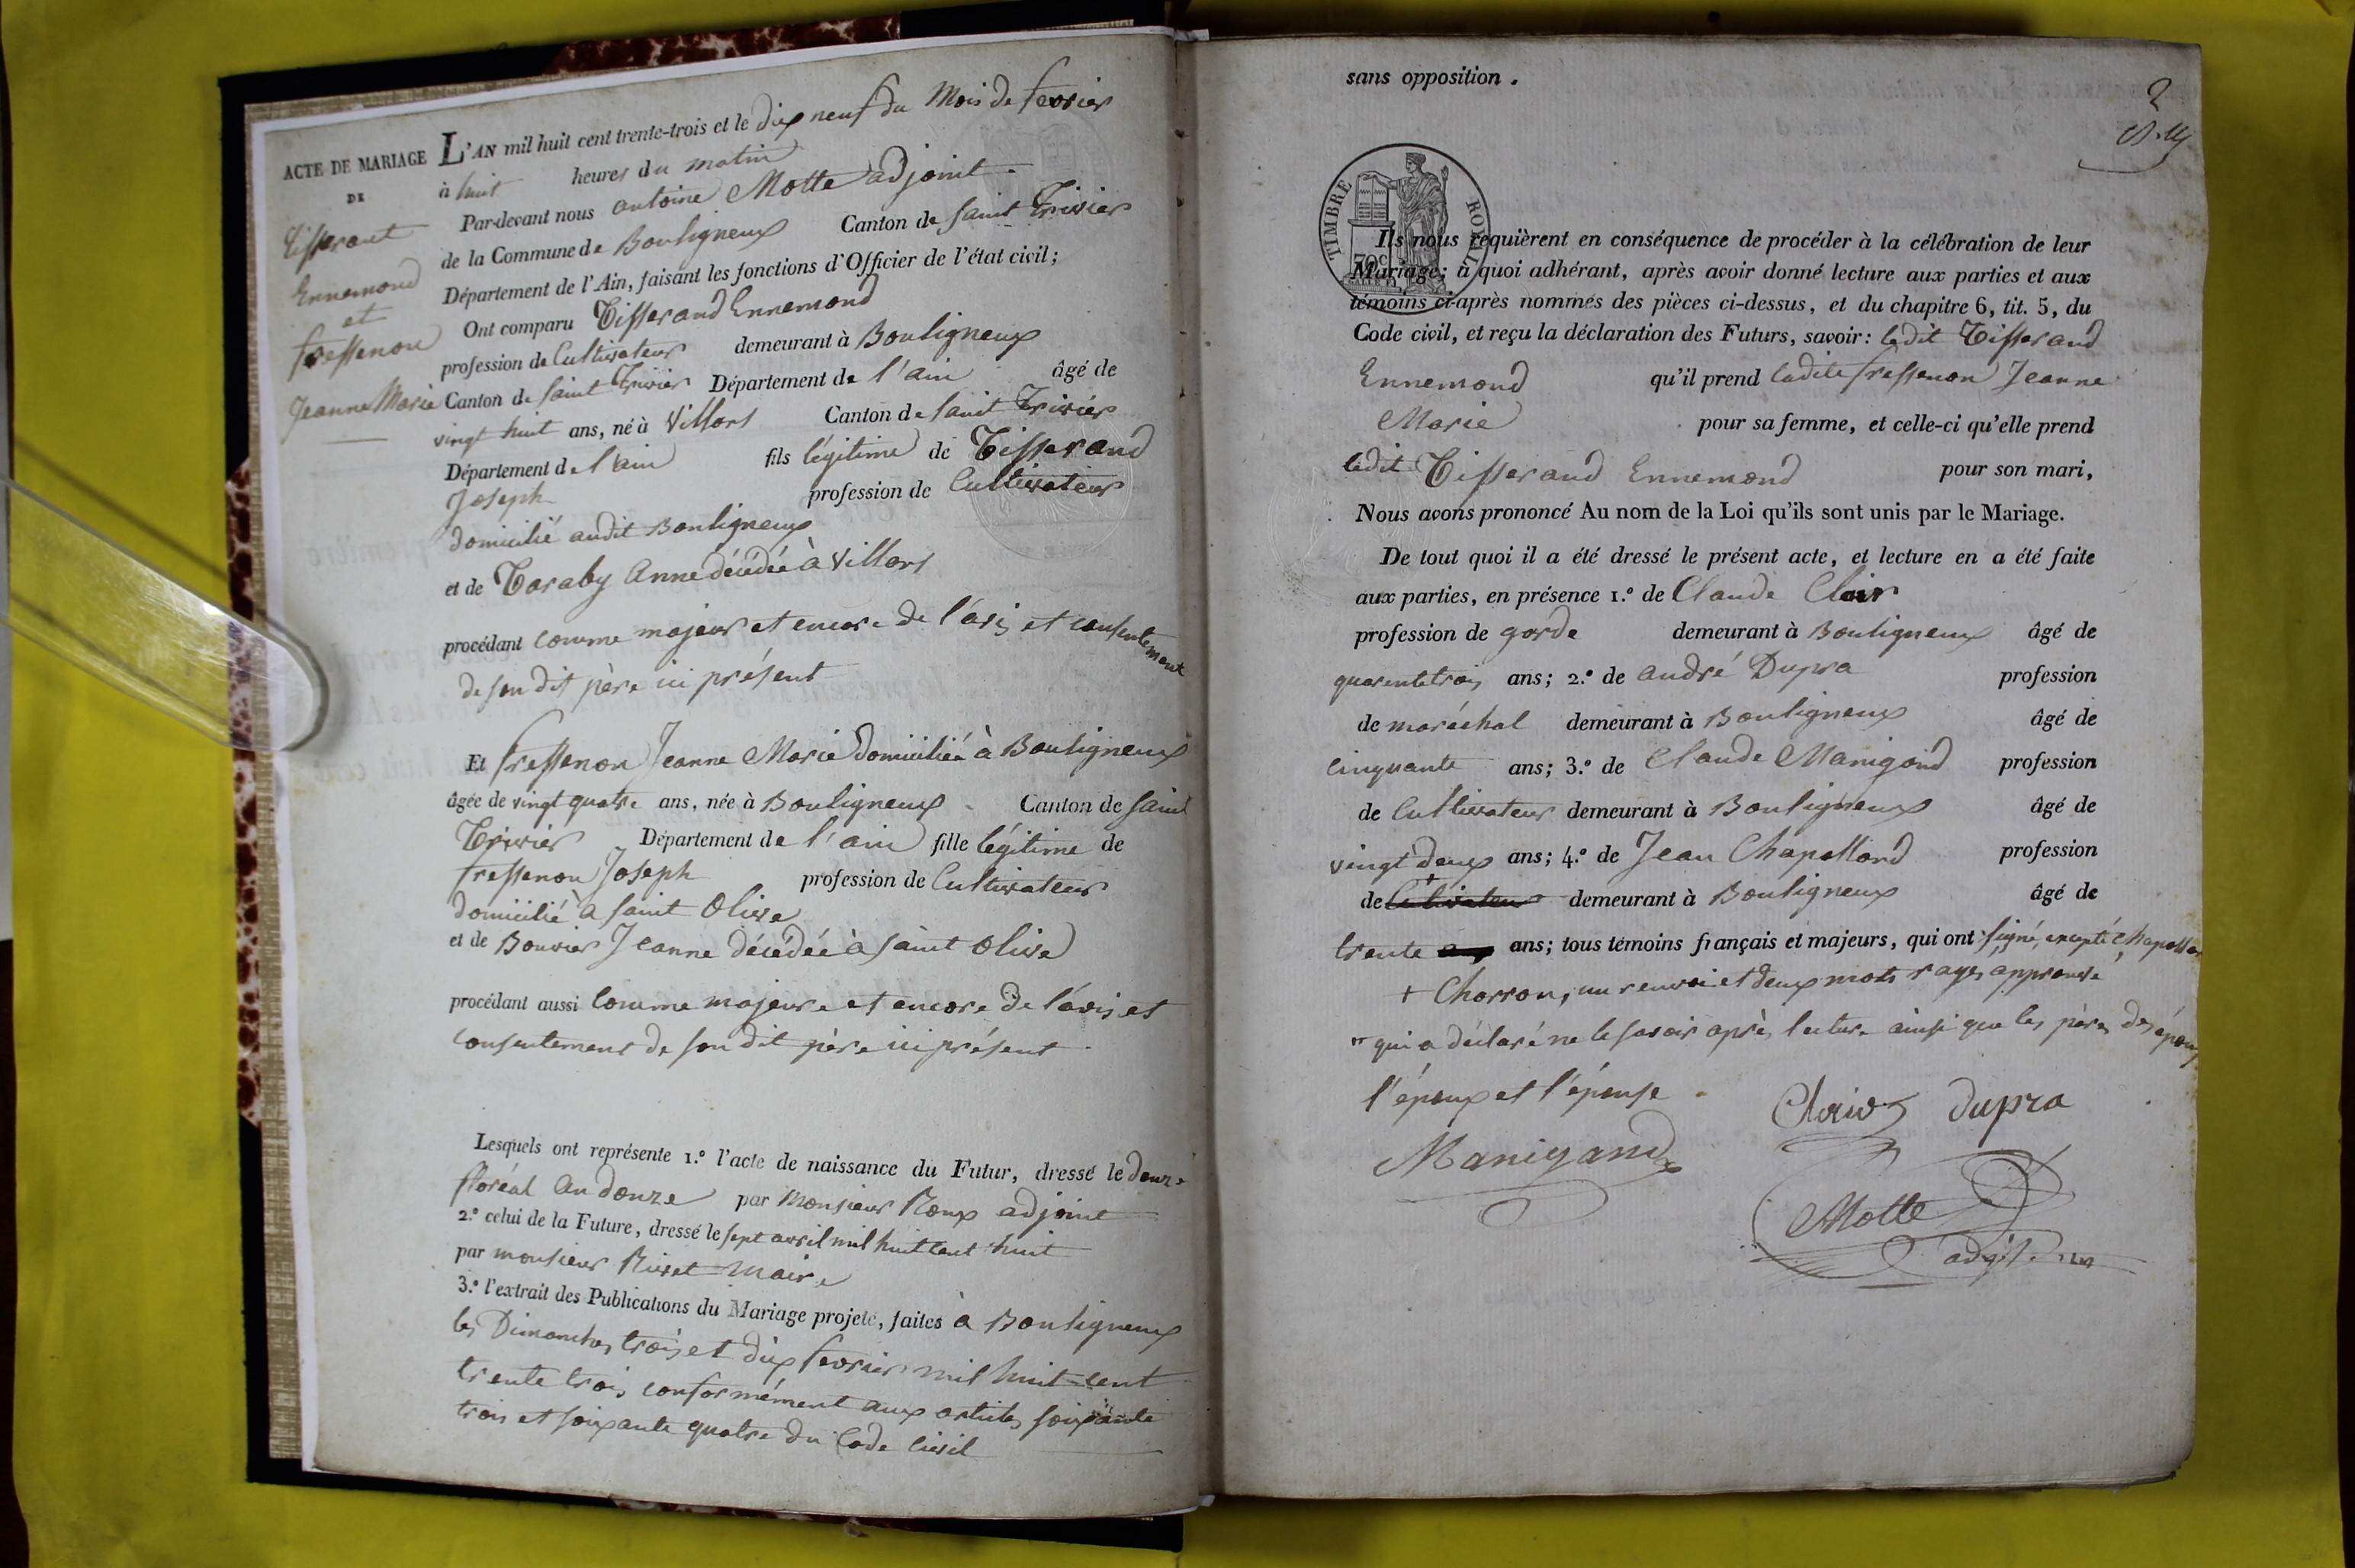 ACTE DE MARIAGE
DE
Tisserant
Ennemond
et
fressenon
Jeanne Marie
L'AN mil huit cent trente-trois et le dix neuf du Mois de fevrier
à huit heures du matin
Par-devant nous antoine Motte adjoint
de la Commune de Bouligneux Canton de saint Trivier
Département de l'Ain, faisant les fonctions d'Officier de l'état civil;
Ont comparu Tisserand Ennemond
profession de Cultivateur demeurant à Bouligneux
Canton de saint Trivier Département de l'ain âgé de
vingt huit ans, né à Villars Canton de saint Trivier
Département de l'ain fils légitime de Tisserand
Joseph profession de Cultivateur
domicilié audit Bouligneux
et de Taraby Anne décédée à Villars
procédant comme majeur et encore de l'avis et consentement
de son dit père ici présent
Et fressenon Jeanne Marie domiciliée à Bouligneux
âgée de vingt quatre ans, née à Bouligneux Canton de saint
Trivier Département de l'ain fille légitime de
fressenon Joseph profession de Cultivateur
domicilié à saint Olive
et de Bouvier Jeanne décédée à saint Olive
procédant aussi Comme majeure et encore de l'avis et
consentement de son dit père ici présent
Lesquels ont représenté 1.° l'acte de naissance du Futur, dressé le douze
floréal an douze par Monsieur Roux adjoint
2.° celui de la Future, dressé le sept avril mil huit cent huit
par monsieur Rivet Maire
3.° l'extrait des Publications du Mariage projeté, faites à Bouligneux
les Dimanches trois et dix fevrier mil huit cent
trente trois conformément aux articles soixante
trois et soixante quatre du Code Civil
sans opposition.
2
TIMBRE ROYAL
70c
Ils nous requièrent en conséquence de procéder à la célébration de leur
Mariage; à quoi adhérant, après avoir donné lecture aux parties et aux
témoins ci-après nommés des pièces ci-dessus, et du chapitre 6, tit. 5, du
Code civil, et reçu la déclaration des Futurs, savoir: ledit Tisserand
Ennemond qu'il prend ladite fressenon Jeanne
Marie pour sa femme, et celle-ci qu'elle prend
ledit Tisserand Ennemond pour son mari,
Nous avons prononcé Au nom de la Loi qu'ils sont unis par le Mariage.
De tout quoi il a été dressé le présent acte, et lecture en a été faite
aux parties, en présence 1.° de Claude Clair
profession de garde demeurant à Bouligneux âgé de
quarentetrois ans; 2.° de andré Dupra profession
de maréchal demeurant à Bouligneux âgé de
cinquante ans; 3.° de Claude Manigand profession
de Cultivateur demeurant à Bouligneux âgé de
vingt deux ans; 4.° de Jean Chapolland profession
de + Cultivateur demeurant à Bouligneux âgé de
trente ans; tous témoins français et majeurs, qui ont signé, excepté Chapolland
+ Charron, un renvoi et deux mots rayés approuvé
qui a déclaré ne le savoir après lecture ainsi que les pères des époux
l'époux et l'épouse
Clair dupra
Manigand
Motte
adjt